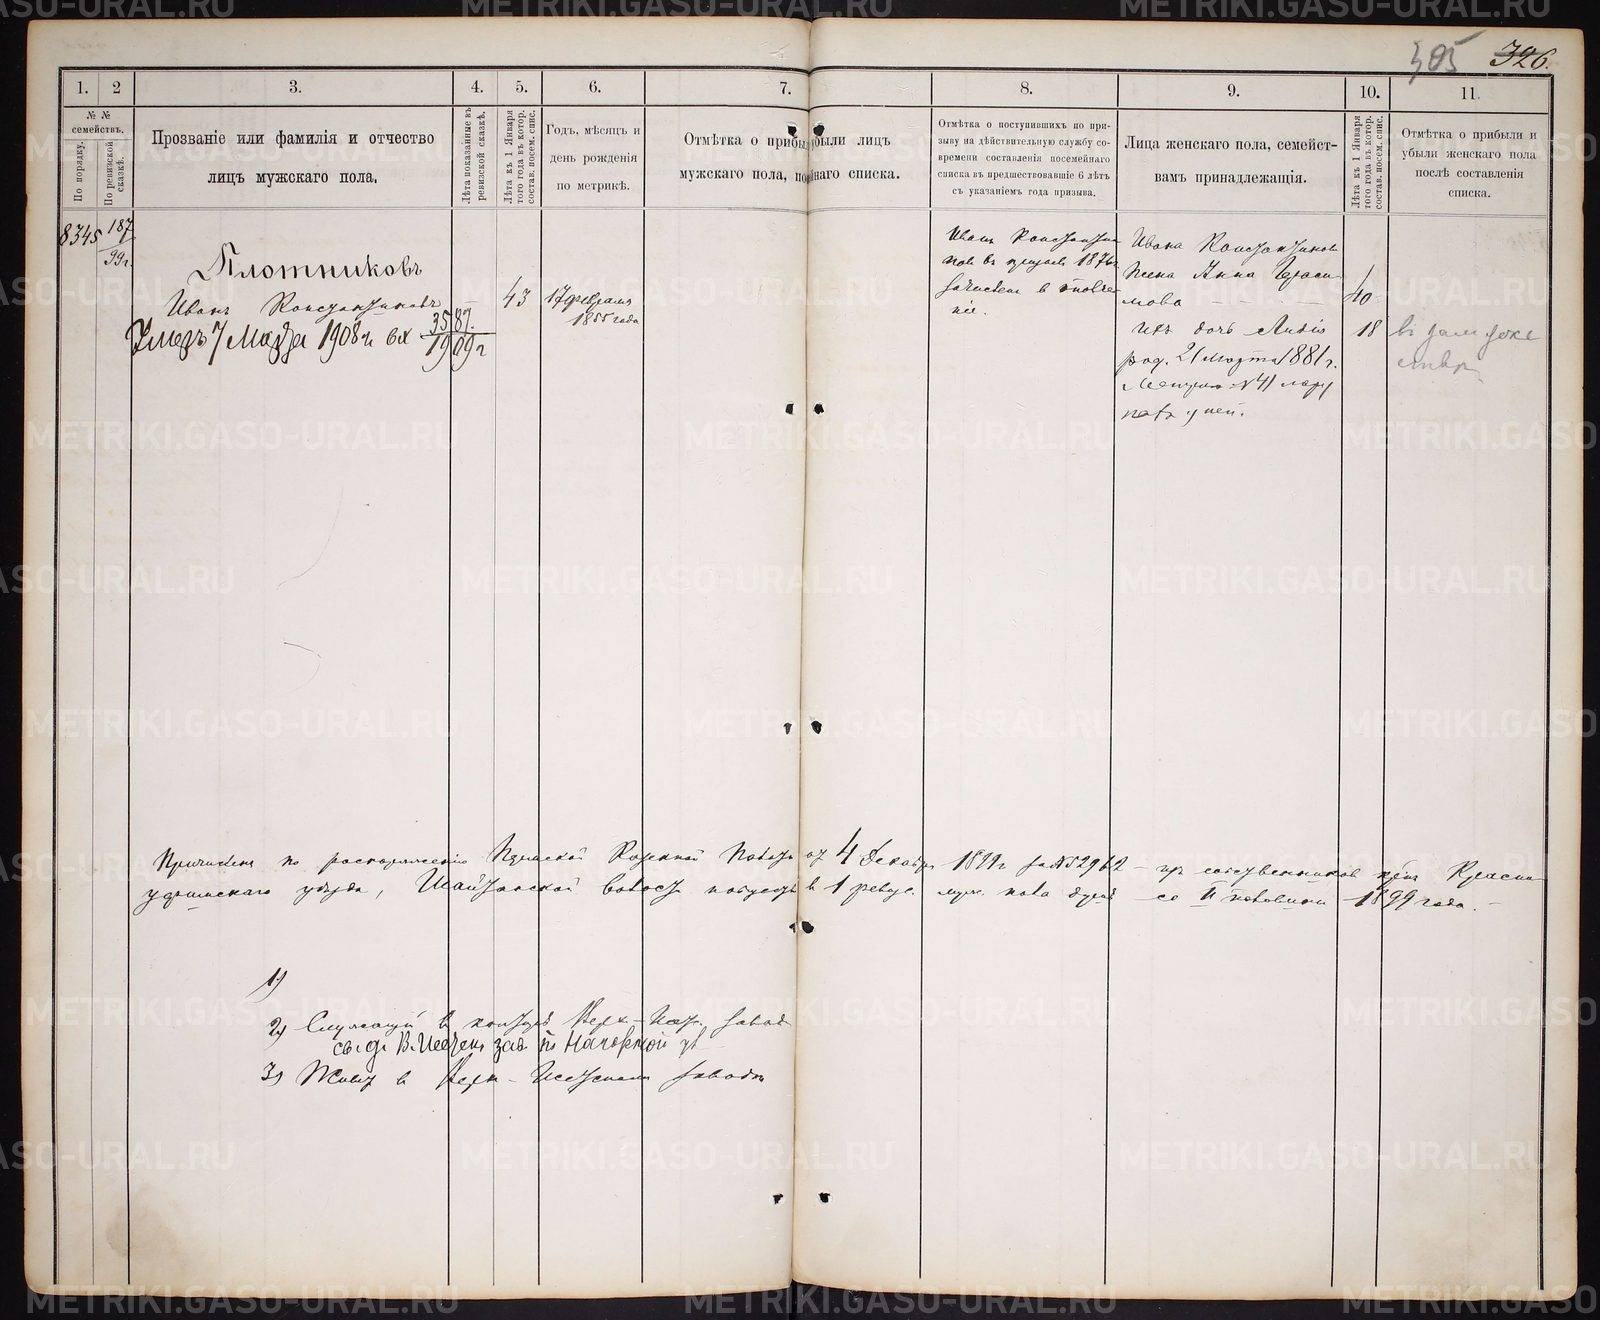 305 326.
1. 2 3. 4. 5. 6. 7. 8. 9. 10. 11.
№ №
семействъ.
По порядку.
По ревизской
сказкѣ.
Прозваніе или фамилія и отчество
лицъ мужскаго пола.
Лѣта показанные въ
ревизской сказкѣ.
Лѣта къ 1 Января
того года въ котор.
состав. посем. спис.
Годъ, мѣсяцъ и
день рожденія
по метрикѣ.
Отмѣтка о прибыли лицъ
мужскаго пола, наго списка.
Отмѣтка о поступившихъ по при-
зыву на дѣйствительную службу со-
времени составленія посемейнаго
списка въ предшествовавшіе 6 лѣтъ
съ указаніемъ года призыва.
Лица женскаго пола, семейст-
вамъ принадлежащія.
Лѣта къ 1 Января
того года въ котор.
состав. посем. спис.
Отмѣтка о прибыли и
убыли женскаго пола
послѣ составленія
списка.
8345 187
99 г.
Плотниковъ
Иванъ Константиновъ 43 17 февраля
1855 года
Умеръ 7 Марта 1908 г. вх 3587
1909 г
Иванъ Константи
новъ въ призывъ 1876 г
зачисленъ в ополче
ніе.
Ивана Константинова
жена Анна Гераси
мова 40
ихъ дочь Лидія 18
род. 21 марта 1881 г.
№ 41
въ замужест
Причисленъ по распоряженію Пермской Казенной Палаты от 4 Декабря 1899 г за № 52962 изъ собственниковъ Красно
уфимскаго уѣзда, Шайтанской волости в 1 муж. пола душѣ со II половины 1899 года.
1)
2) Служащій в конторѣ Верх-Исет. завода
В. Исетск. зав. по Нагорной
3) Живу в Верх-Исетскомъ заводѣ
METRIKI.GASO-URAL.RU